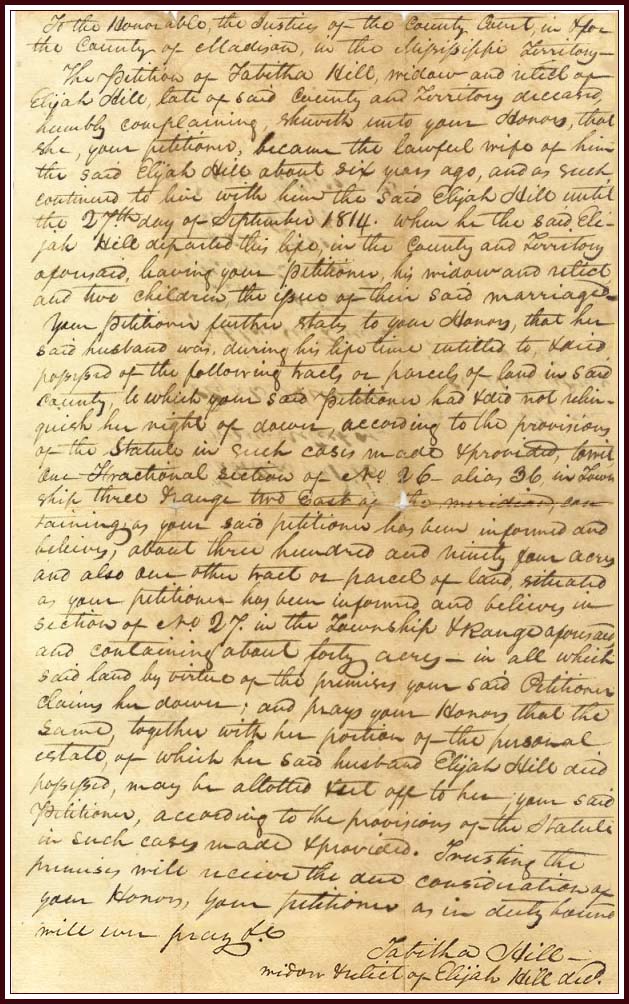 To the Honorable, the Justices of the County Court, in & for
the County of Madison, in the Mississippi Territory—
The Petition of Tabitha Hill, widow and relict of
Elijah Hill, late of said County and Territory deceased,
humbly complaining, sheweth unto your Honors, that
she, your petitioner, became the lawful wife of him
the said Elijah Hill about six years ago, and as such
continued to live with him the said Elijah Hill until
the 27th day of September 1814. when he the said Eli-
jah Hill departed this life, in the County and Territory
aforesaid, leaving your Petitioner, his widow and relict
and two children the issue of their said marriage—
Your Petitioner further states to your Honors, that her
said husband was, during his life time entitled to, & died
possessed of the following tracts or parcels of land in said
County, to which your said Petitioner had & did not relin-
quish her right of dower, according to the provisions
of the Statute in such cases made & provided, towit,
one Fractional section of No. 26 alias 36, in Town
ship three & range two East of the meridian, con
taining, as your said petitioner has been informed and
believes, about three hundred and ninety four acres
and also one other tract or parcel of land, situated
as your petitioner has been informed, and believes in
section of No. 27. in the Township & Range aforesaid
and containing about forty acres — in all which
said land by virtue of the premises your said Petitioner
claims her dower; and prays your Honors that the
same, together with her portion of the personal
estate, of which her said husband Elijah Hill died
possessed, may be allotted & set off to her, your said
Petitioner, according to the provisions of the Statute
in such cases made & provided. Trusting the
premises will receive the due consideration of
your Honors, your petitioner as in duty bound
will ever pray &c
Tabitha Hill —
widow & relict of Elijah Hill decd.